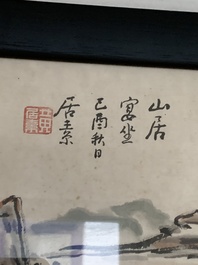 山居
宴坐
己酉秋日
居素